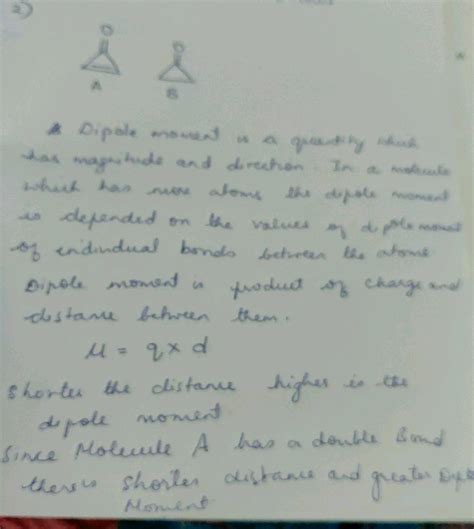 2)
O O
A B
Dipole moment is a quantity which
has magnitude and direction. In a molecule
which has more atoms the dipole moment
is depended on the values of dipole moment
of individual bonds between the atoms
Dipole moment is product of charge and
distance between them.
μ = q x d
Shorter the distance higher is the
dipole moment
Since Molecule A has a double Bond
there is shorter distance and greater Dipole
Moment